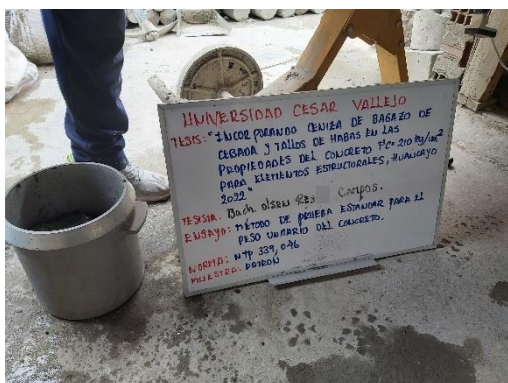 UNIVERSIDAD CESAR VALLEJO
TESIS: "INCORPORANDO CENIZA DE BAGAZO DE
CEBADA Y TALLOS DE HABAS EN LAS
PROPIEDADES DEL CONCRETO F'C= 210 kg/cm2
PARA ELEMENTOS ESTRUCTORALES, HUANCAYO
2022"
TESISTA: Bach. Olsen Campos.
ENSAYO: MÉTODO DE PRUEBA ESTANDAR PARA EL
PESO UNITARIO DEL CONCRETO.
NORMA: NTP 339,046
MUESTRA: PATRON